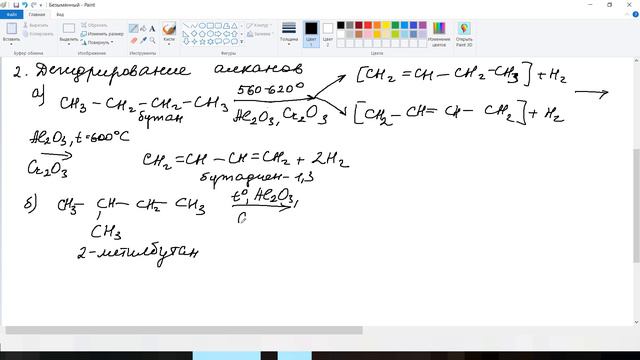 Безымянный - Paint
Файл Главная Вид
Вставить Вырезать Копировать Выделить Обрезать Изменить размер Повернуть Кисти Контур Заливка Толщина Цвет 1 Цвет 2 Изменение цветов Открыть Paint 3D
Буфер обмена Изображение Инструменты Фигуры Цвета
2. Дегидрирование алканов
[CH2 =CH – CH2 –CH3] + H2
а) CH3 – CH2 – CH2 – CH3 560-620° Al2O3, Cr2O3
бутан
[CH2 – CH = CH – CH2] + H2
Al2O3, t=600°C
Cr2O3
CH2 =CH – CH =CH2 + 2H2
бутадиен-1,3
б) CH3 – CH – CH2 – CH3 t°, Al2O3,
CH3
2-метилбутан